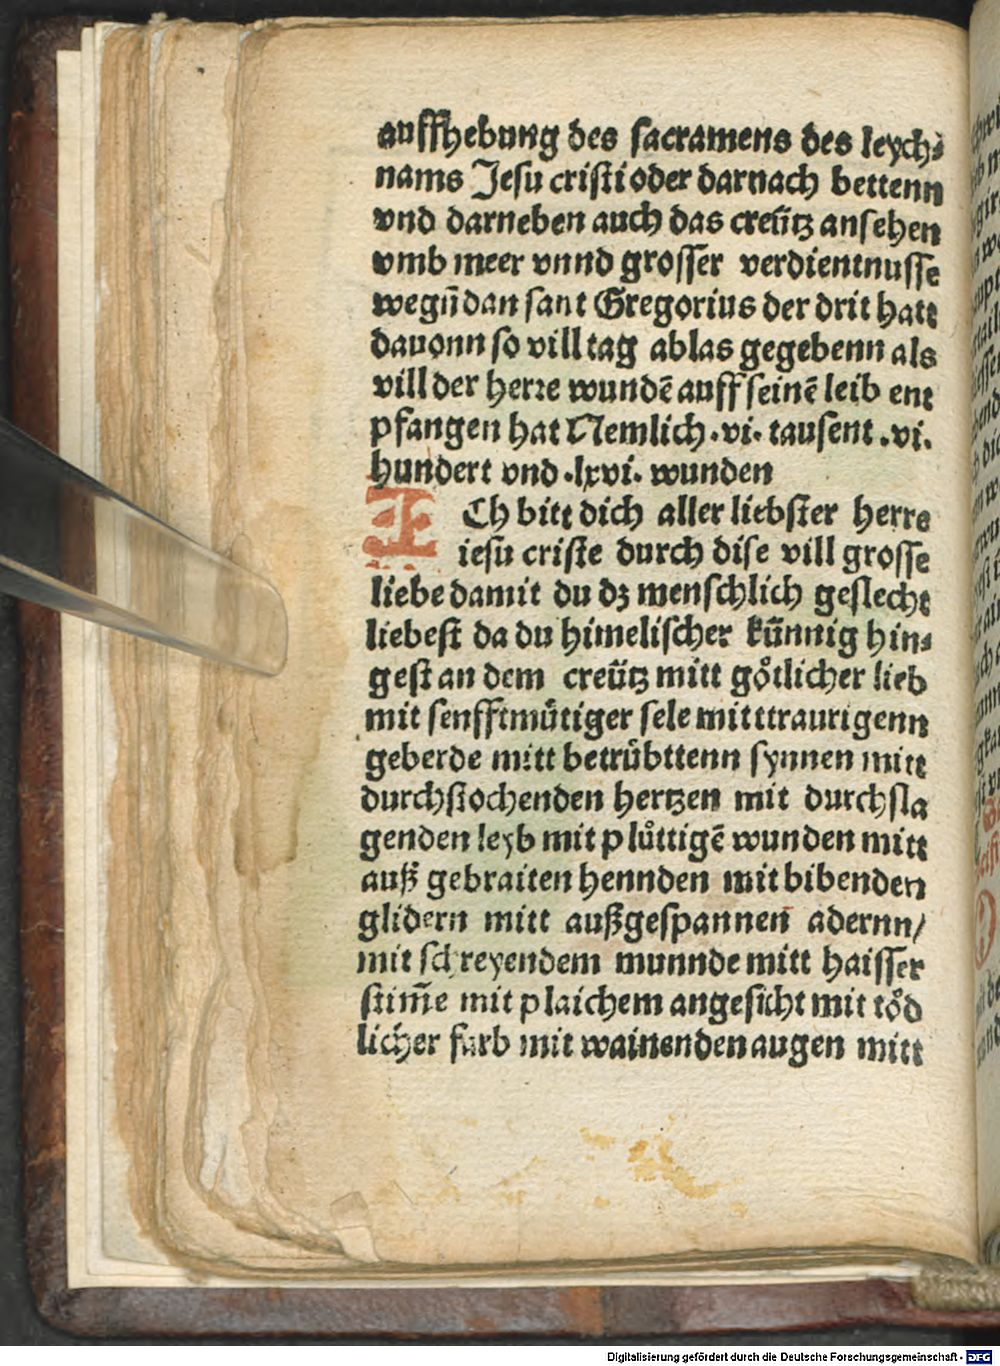 auffhebung des sacramens des leych⸗
nams Jesu cristi oder darnach bettenn
vnd darneben auch das creűtz ansehen
vmb meer vnnd grosser verdientnusse
wegn̄ dan sant Gregorius der drit hatt
dauonn so vill tag ablas gegebenn als
vill der herre wundē auff seinē leib ent
pfangen hat Nemlich .vi. tausent .vi.
hundert vnd .lxvi. wunden
ICh bitt dich aller liebster herre
iesu criste durch dise vill grosse
liebe damit du dz menschlich geslecht
liebest da du himelischer kűnnig hin⸗
gest an dem creűtz mitt goͤtlicher lieb
mit senfftmuͤtiger sele mitt traurigenn
geberde mitt betruͤbttenn synnen mitt
durchstochenden hertzen mit durchsla
genden leyb mit pluͦttigē wunden mitt
auß gebraiten hennden mit bibenden
glidern mitt außgespannen adernn/
mit schreyendem munnde mitt haisser
stim̄e mit plaichem angesicht mit toͤd
licher farb mit wainenden augen mitt
Digitalisierung gefördert durch die Deutsche Forschungsgemeinschaft - DFG